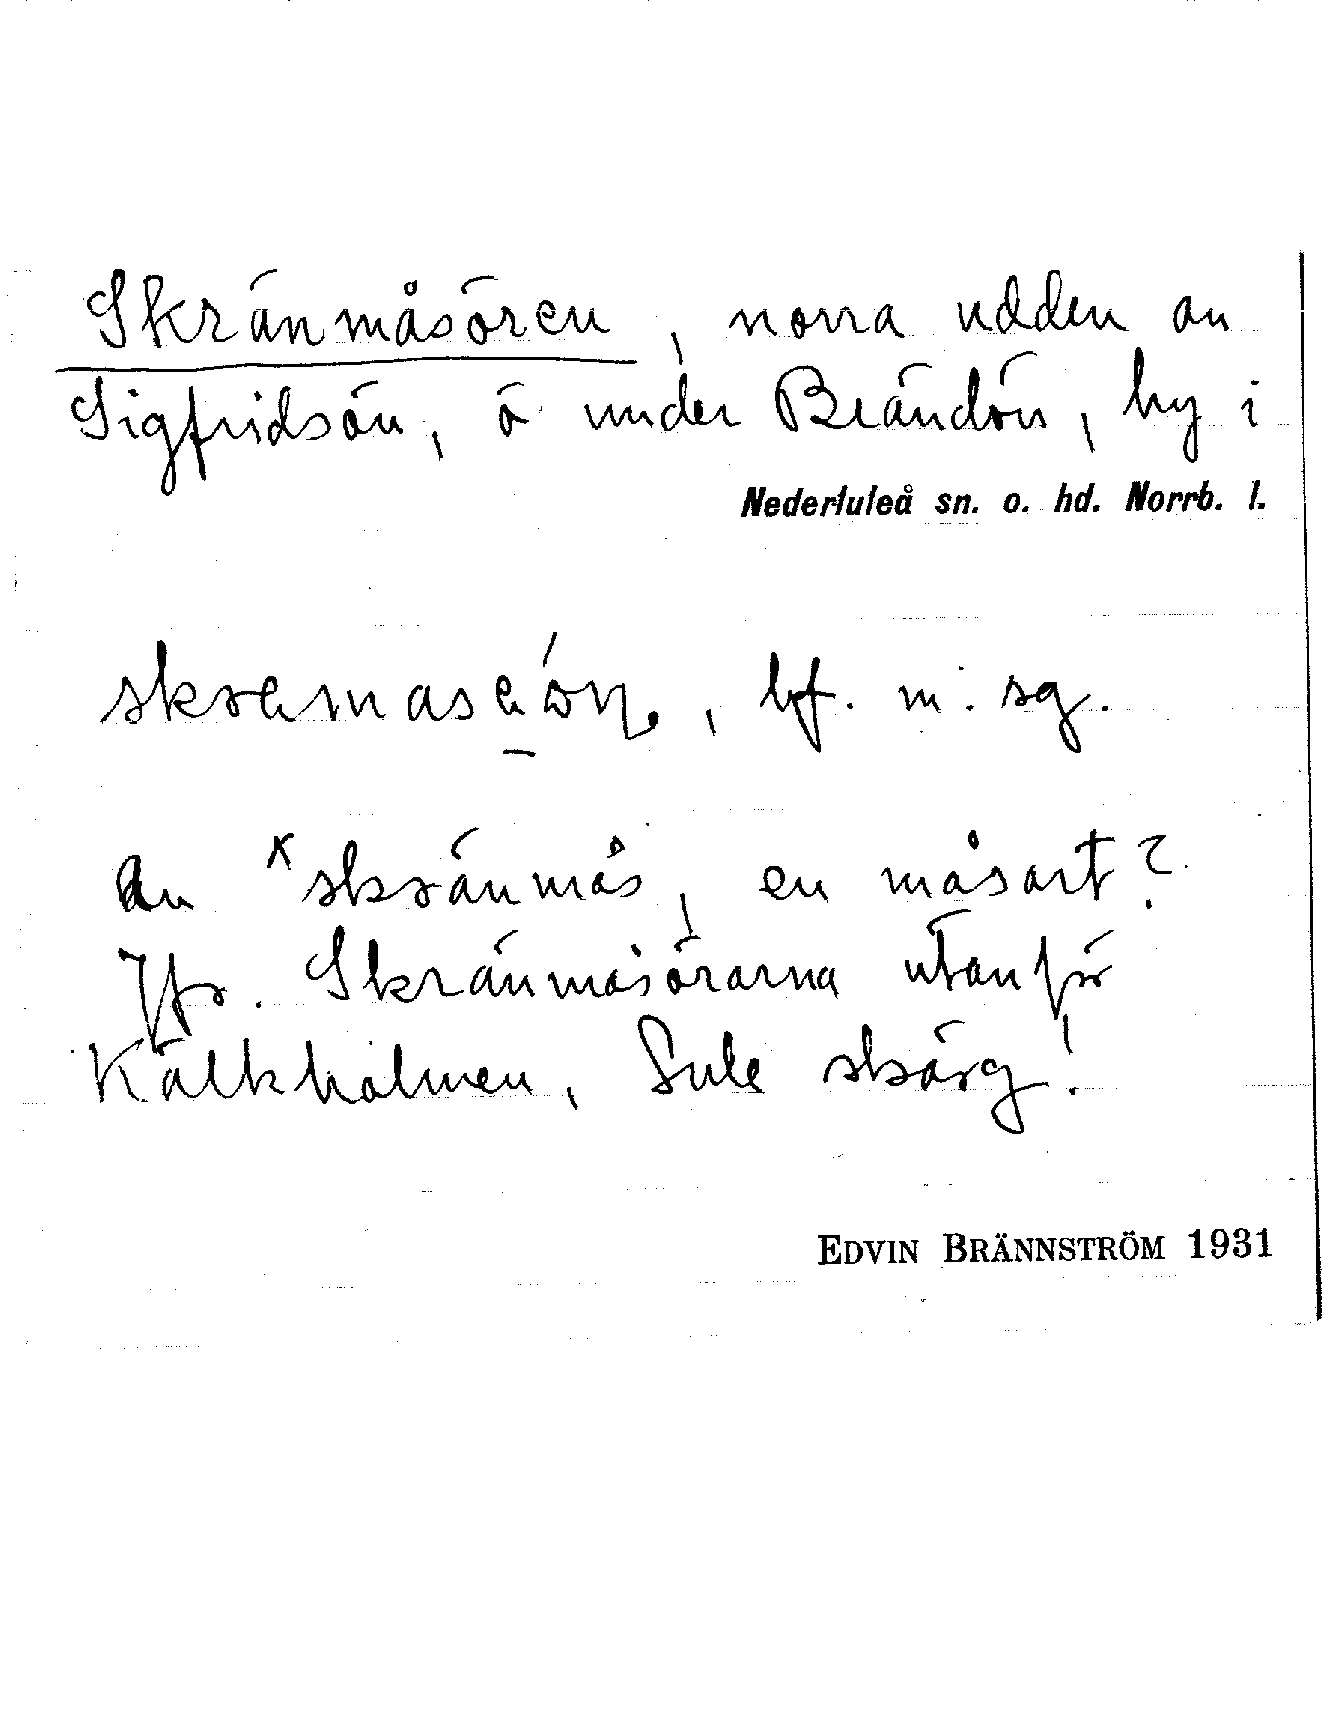 Skränmåsören, norra udden av
Sigfridsön, ö under Brändön, by i
Nederluleå sn. o. hd. Norrb. l.
bf. m. sg.
Av *skränmås, en måsart?
Jfr. Skränmåsörarna utanför
Kälkholmen, Lule skärg!
EDVIN BRÄNNSTRÖM 1931